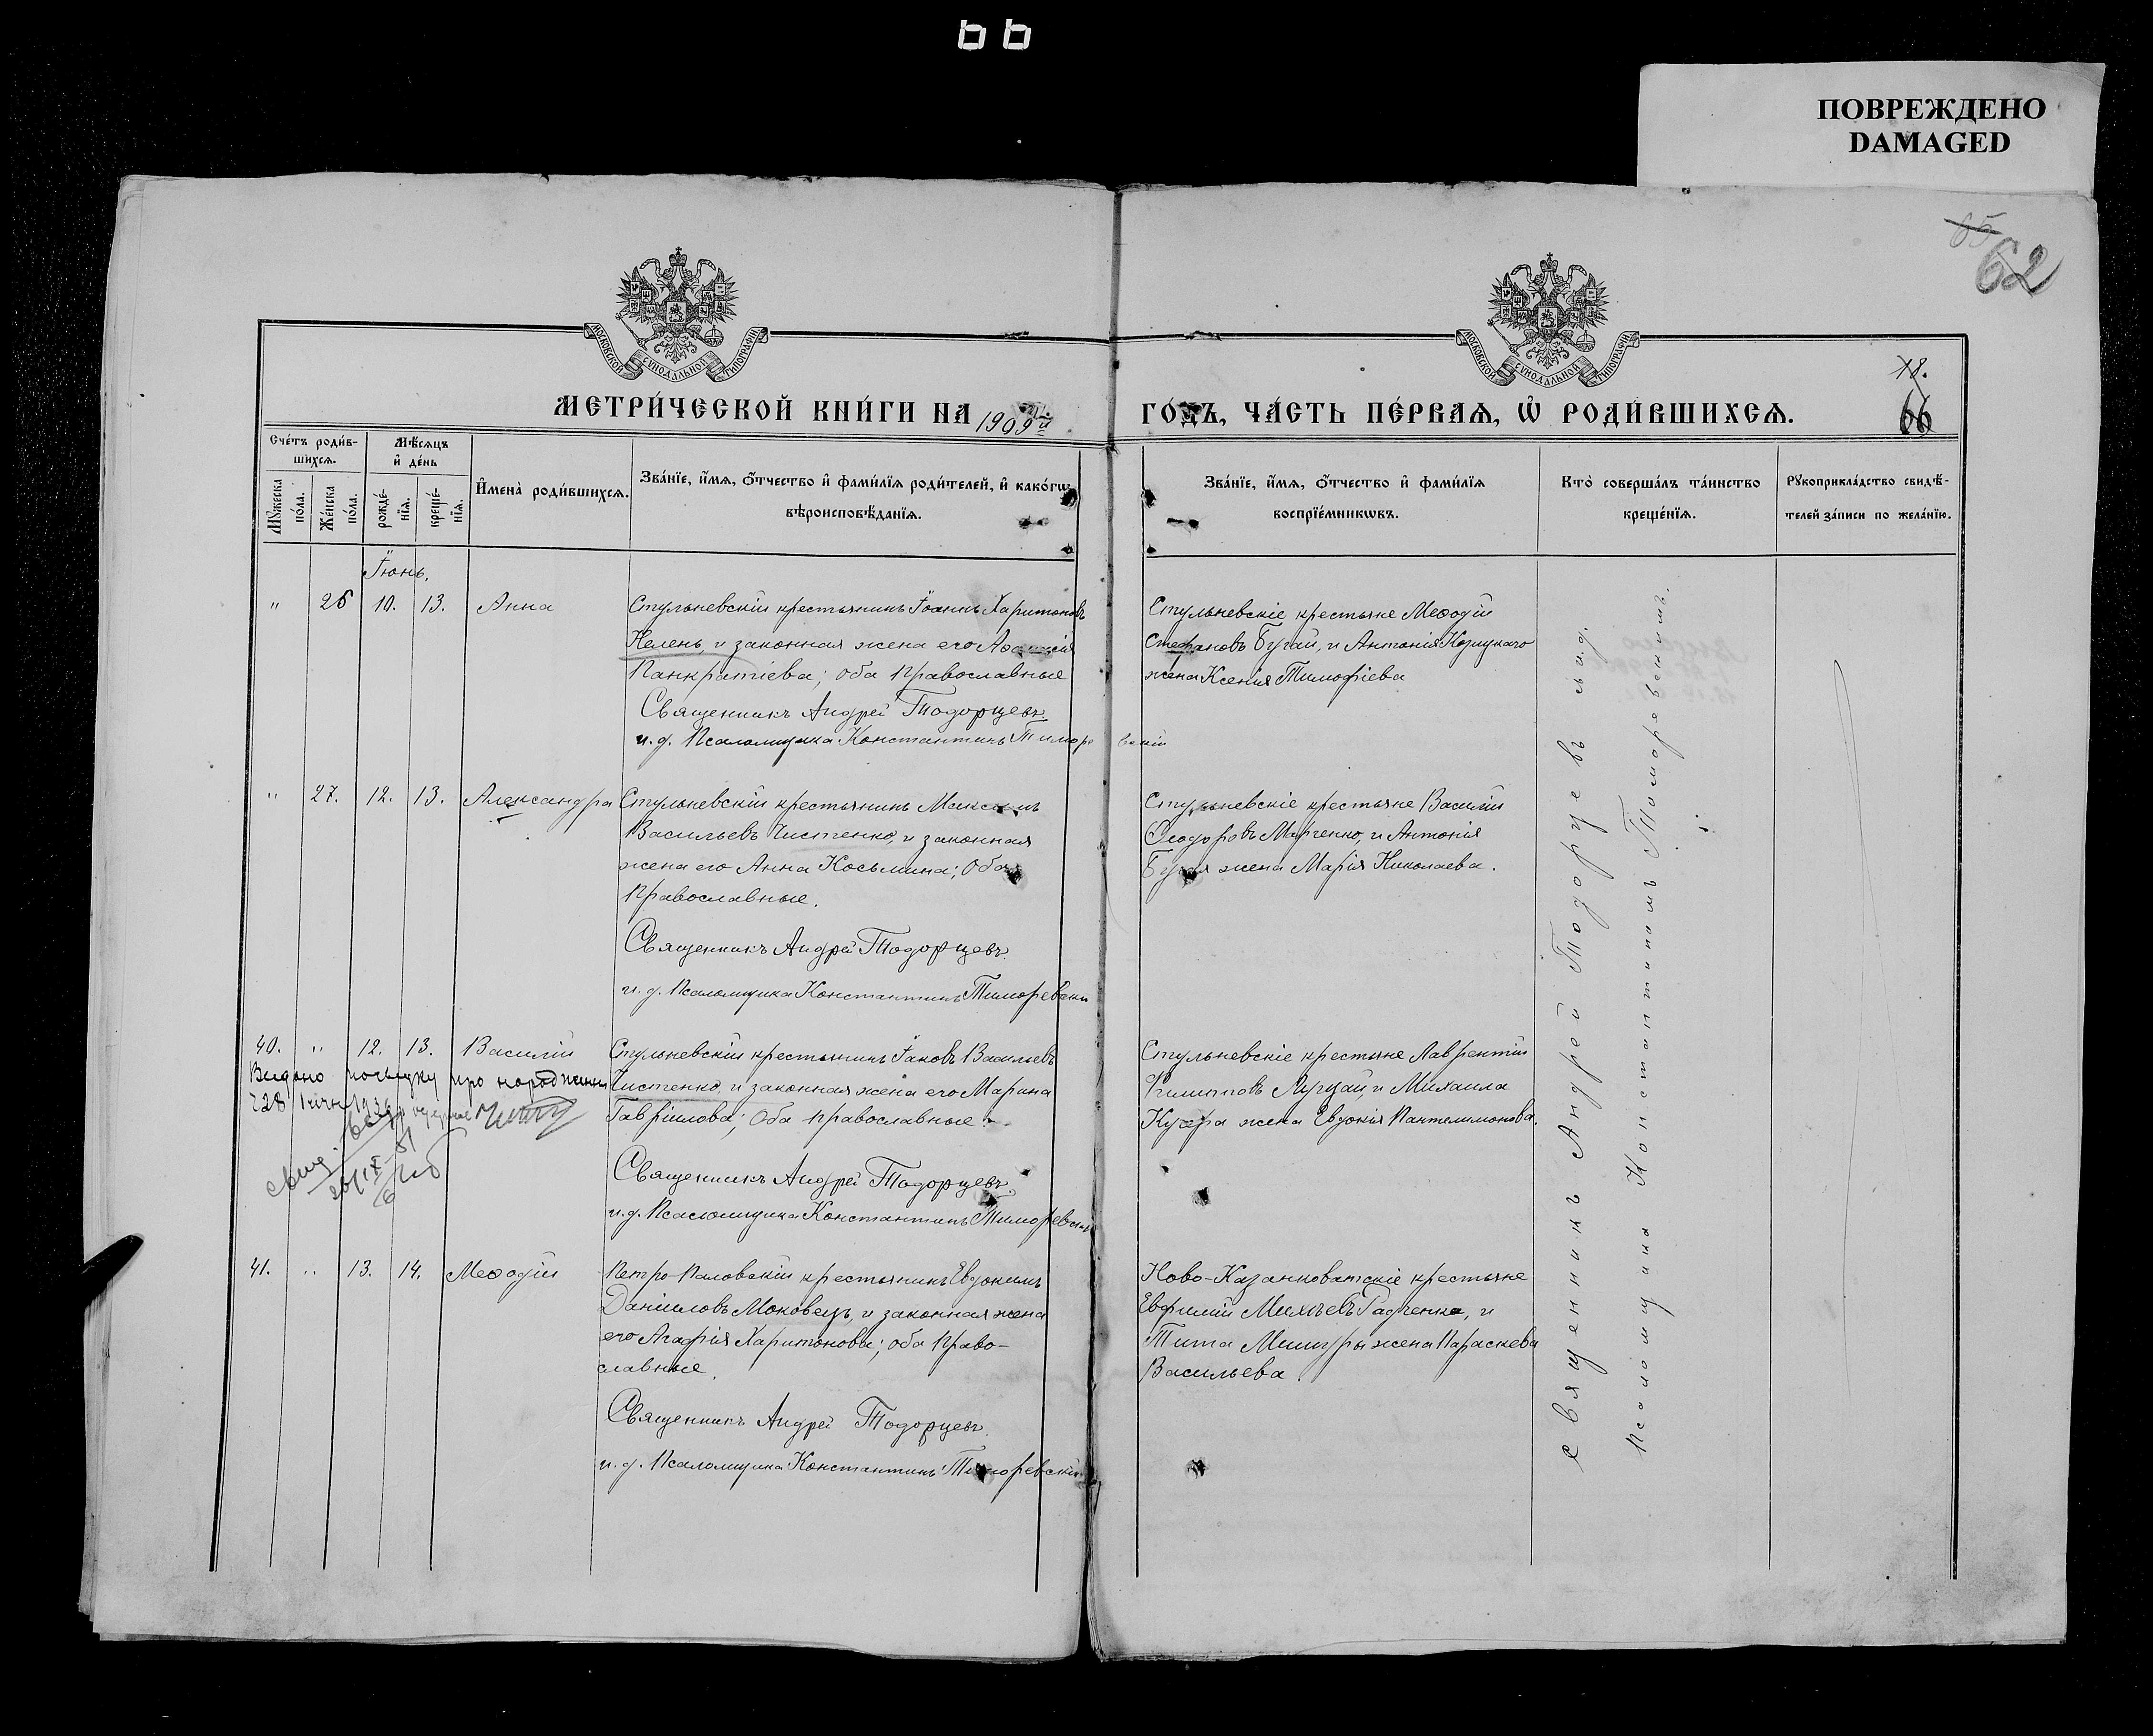 66
ПОВРЕЖДЕНО
DAMAGED
65
62
МОСКОВСКОЙ СѴНОДАЛЬНОЙ ТИПОГРАФІИ
МОСКОВСКОЙ СѴНОДАЛЬНОЙ ТИПОГРАФІИ
МЕТРИ́ЧЕСКОЙ КНИ́ГИ НА 1909й ГО́ДЪ, ЧА́СТЬ ПЕ́РВАѦ, Ѡ҆ РОДИ́ВШИХСѦ.
78.
66
Сче́тъ роди́в-
шихсѧ.
Мѣ́сѧцъ
и҆ де́нь
Мꙋ́жеска
по́ла.
Же́нска
по́ла.
рожде́-
нїѧ.
креще́-
нїѧ.
И҆мена̀ роди́вшихсѧ.
Зва́нїе, и҆́мѧ, ѻ҆́тчество и҆ фами́лїѧ роди́телей, и҆ како́гѡ
вѣроисповѣ́данїѧ.
Зва́нїе, и҆́мѧ, ѻ҆́тчество и҆ фами́лїѧ
воспрїе́мникѡвъ.
Кто̀ соверша́лъ та́инство
креще́нїѧ.
Рꙋкоприкла́дство свидѣ́-
телей за́писи по жела́нїю.
Іюнь.
" 26 10. 13. Анна
Стульневскій крестьянинъ Іоаннъ Харитоновъ
Келень, и законная жена его
Панкратіева; оба православные
Священникъ Андрей Тодорцевъ.
и. д. Псаломщика Константинъ Тиморевскій
Стульневскіе крестьяне Меѳодій
Стефановъ Бугай, и Антонія Корицкаго
жена Ксенія Тимофіева
" 27. 12. 13. Александра
Стульневскій крестьянинъ Максимъ
Васильевъ Чистенко, и законная
жена его Анна Косьмина; Оба
православные.
Священникъ Андрей Тодорцевъ.
и. д. Псаломщика Константинъ Тиморевскій
Стульневскіе крестьяне Василій
Ѳеодоровъ Марченко, и Антонія
Бугая жена Марія Николаева.
40. " 12. 13. Василій
Видано посвідку про народження
Стульневскій крестьянинъ Іаковъ Васильевъ
Чистенко, и законная жена его Марина
Гавріилова; Оба православные.
Священникъ Андрей Тодорцевъ.
и. д. Псаломщика Константинъ Тиморевскій
Стульневскіе крестьяне Лаврентій
Филипповъ Луцай, и Михаила
Кучера жена Евдокія Пантелимонова.
41. " 13. 14. Меѳодій
Петро-Паловскій крестьянинъ Евдокимъ
Даніиловъ Моковецъ, и законная жена
его Агафія Харитонова; оба право-
славные.
Священникъ Андрей Тодорцевъ.
и. д. Псаломщика Константинъ Тиморевскій
Ново-Казанковатскіе крестьяне
Евфимій Радченко, и
Тита Мишуры жена Параскева
Васильева.
Священникъ Андрей Тодорцевъ съ и.д.
Псаломщика Константиномъ Тиморевскимъ.